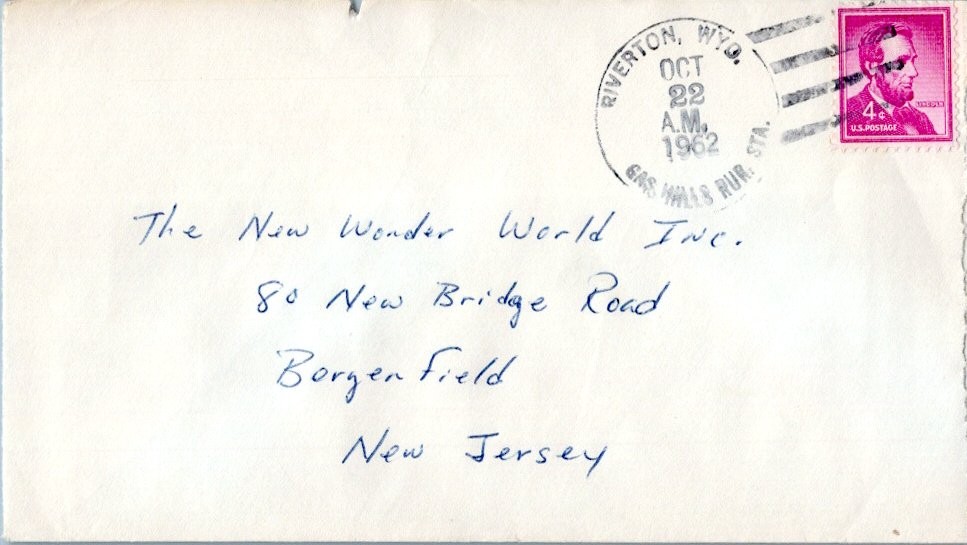 RIVERTON, WYO.
OCT
22
A.M.
1962
GAS HILLS RUR. STA.
LINCOLN
4¢
U.S. POSTAGE
The New Wonder World Inc.
80 New Bridge Road
Bergenfield
New Jersey